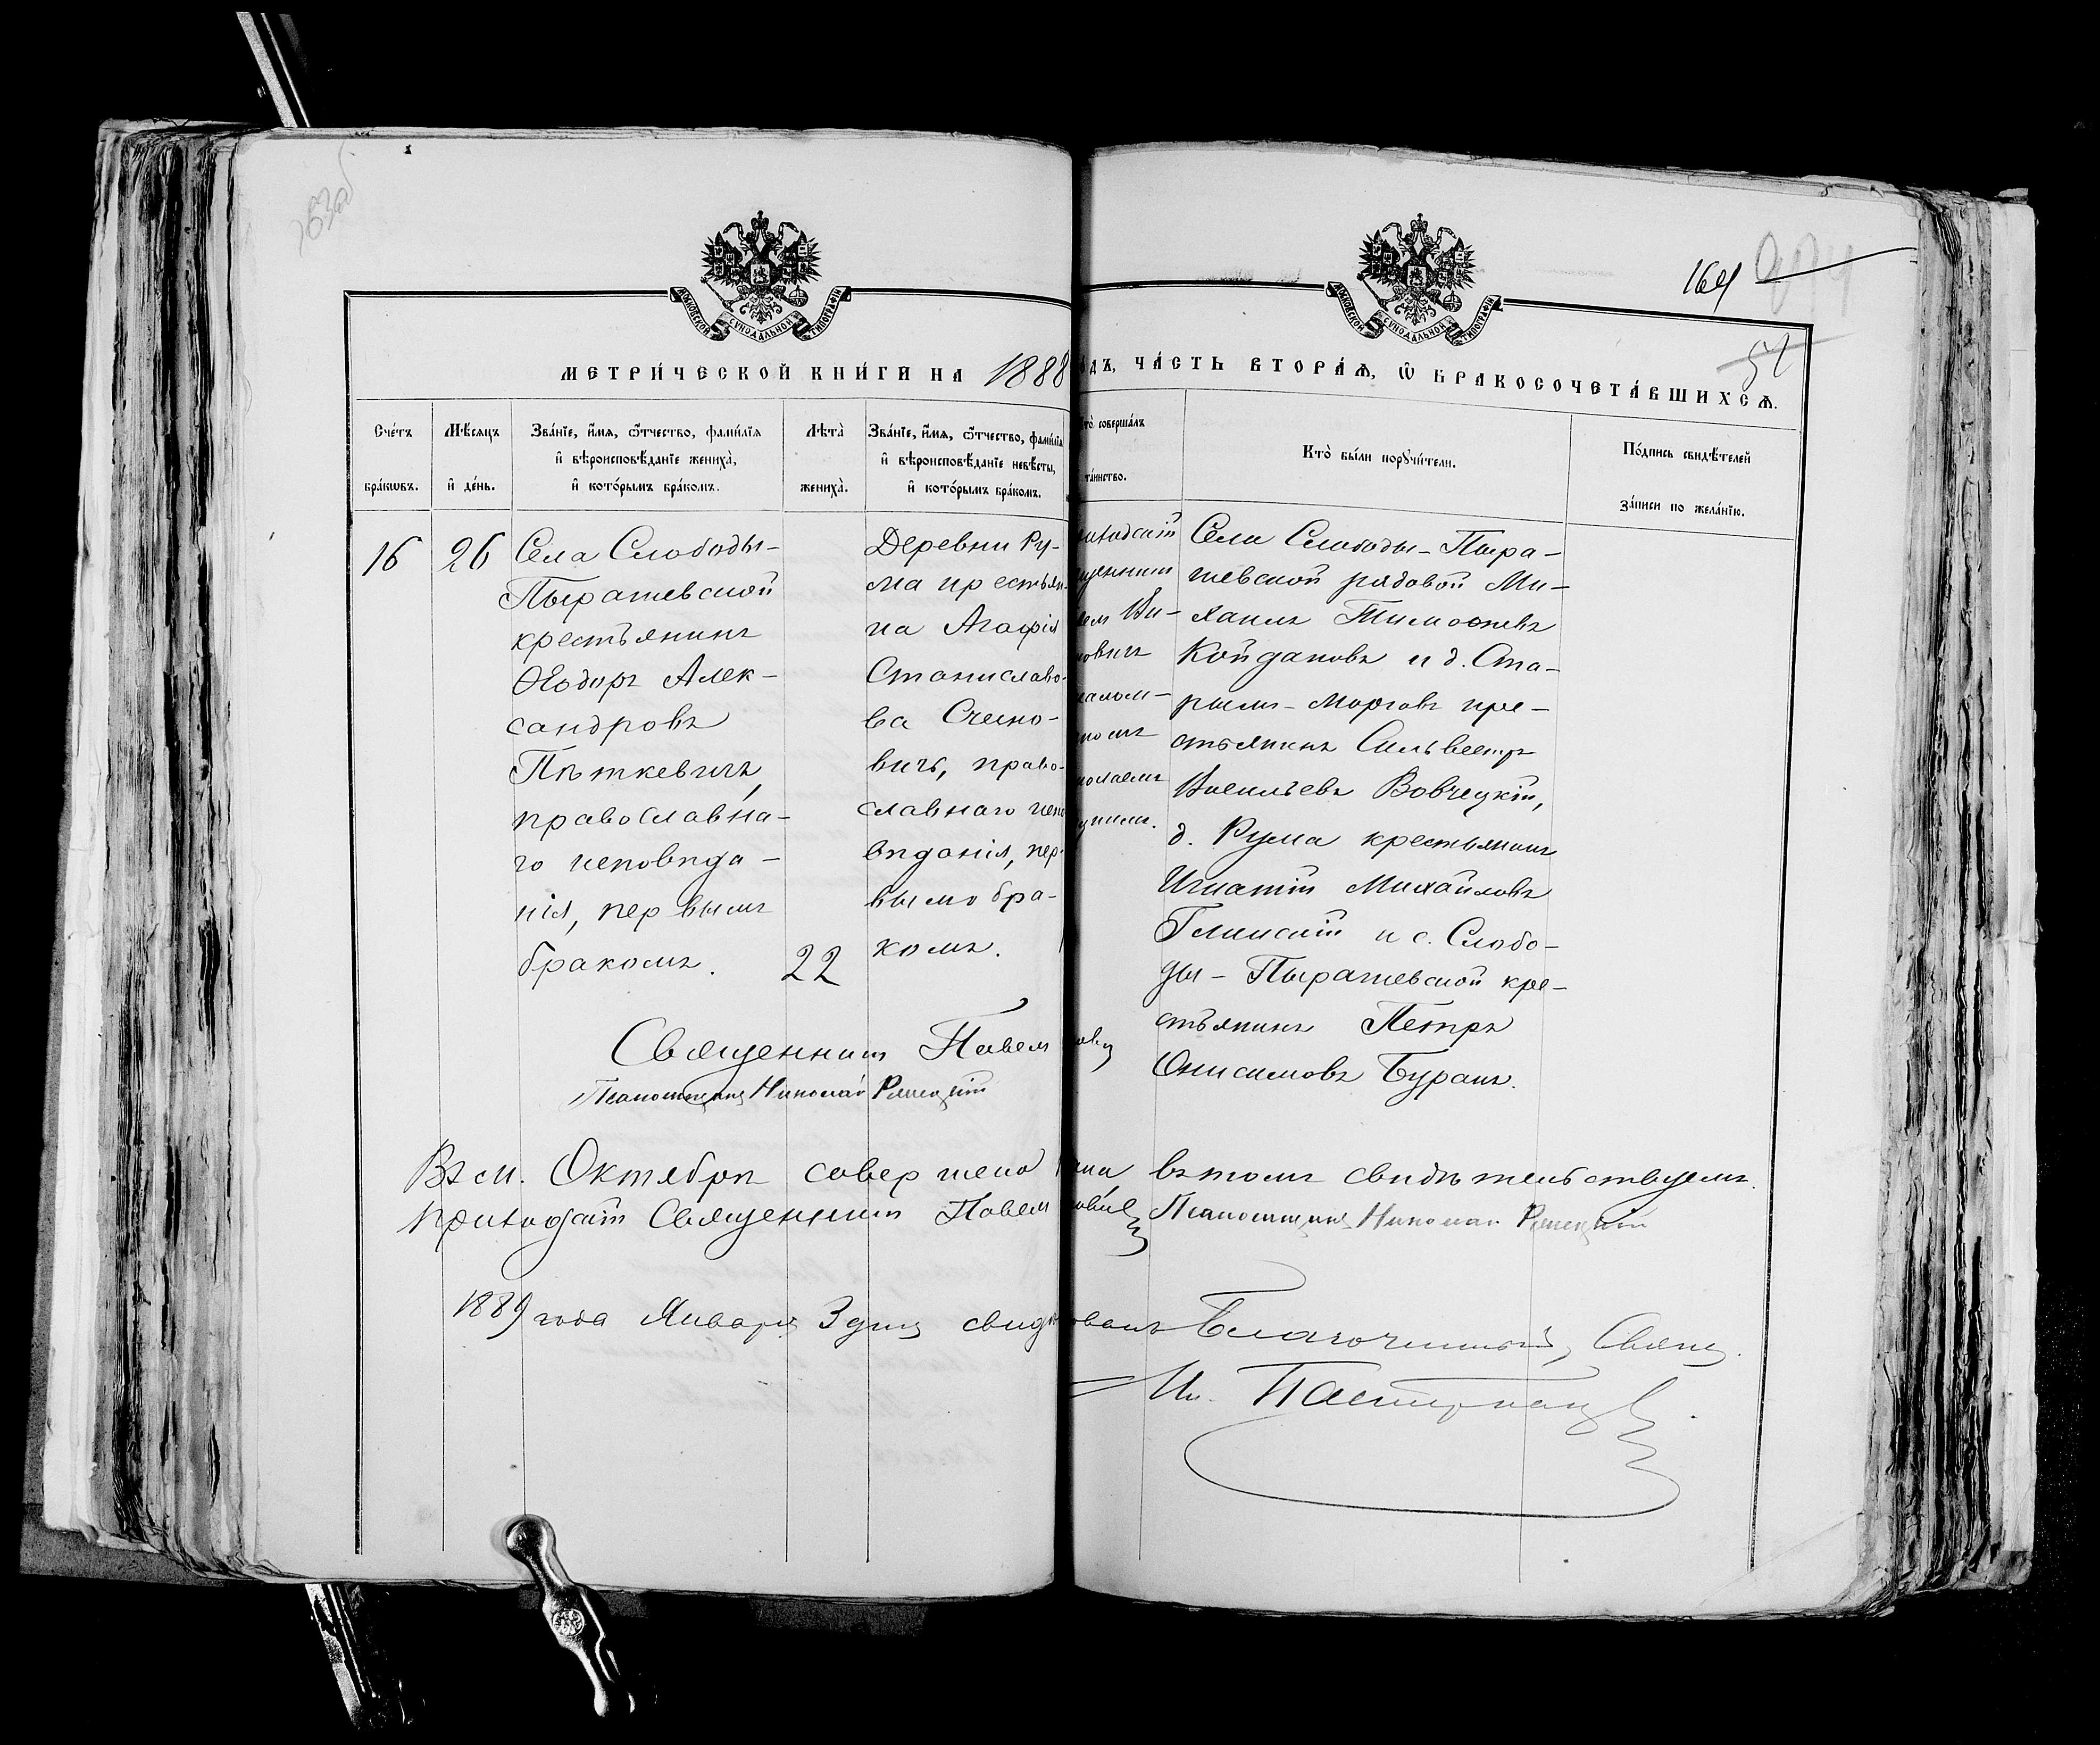 164
52
МОСКОВСКОЙ СУНОДАЛЬНОЙ ТИПОГРАФІИ
МОСКОВСКОЙ СУНОДАЛЬНОЙ ТИПОГРАФІИ
МЕТРИ́ЧЕСКОЙ КНИ́ГИ НА 1888
ЧА́СТЬ ВТОРА́Ѧ, Ѽ БРАКОСОЧЕТА́ВШИХСѦ.
Сче́тъ
бра́кѡвъ.
Мѣ́сяцъ
и҆ де́нь.
Зва́нїе, и҆́мѧ, ѻ҆́тчество, фами́лїѧ
и҆ вѣроисповѣ́данїе жениха̀,
и҆ кото́рымъ бра́комъ.
Лѣ́та
жениха̀.
Зва́нїе, и҆́мѧ, ѻ҆́тчество, фами́лїѧ
и҆ вѣроисповѣ́данїе невѣ́сты,
и҆ кото́рымъ бра́комъ.
соверша́лъ
та́инство.
Кто̀ бы́ли порꙋчи́тели.
По́дпись свидѣ́телей
за́писи по жела́нїю.
16
26
Села Слободы-
Пырашевской
крестьянинъ
Ѳеодоръ Алек-
сандровъ
Пѣткевичъ,
православна-
го исповѣда-
нія, первымъ
бракомъ.
22
Деревни Ру-
ма крестьян-
ка Агафія
Станиславо-
ва Счено-
вичъ, право-
славнаго испо
вѣданія, пер-
вымъ бра-
комъ.
Села Слободы-Пыра-
шевской рядовой Ми-
хаилъ Тимоѳеевъ
Койдановъ и д. Ста-
рыхъ-Морговъ кре-
стьянинъ Сильвестръ
Васильевъ Вовчецкій,
д. Рума крестьянинъ
Игнатій Михайловъ
Глинскій и с. Слобо-
ды-Пырашевской кре-
стьянинъ Петръ
Онисимовъ Буракъ.
Священникъ Павелъ
Псаломщикъ Николай
Въ м. Октябрѣ совершено въ томъ свидѣтельствуемъ.
Приходскій Священникъ Павелъ Псаломщикъ Николай
1889 года Января 3 дня Благочинный, Свящ.